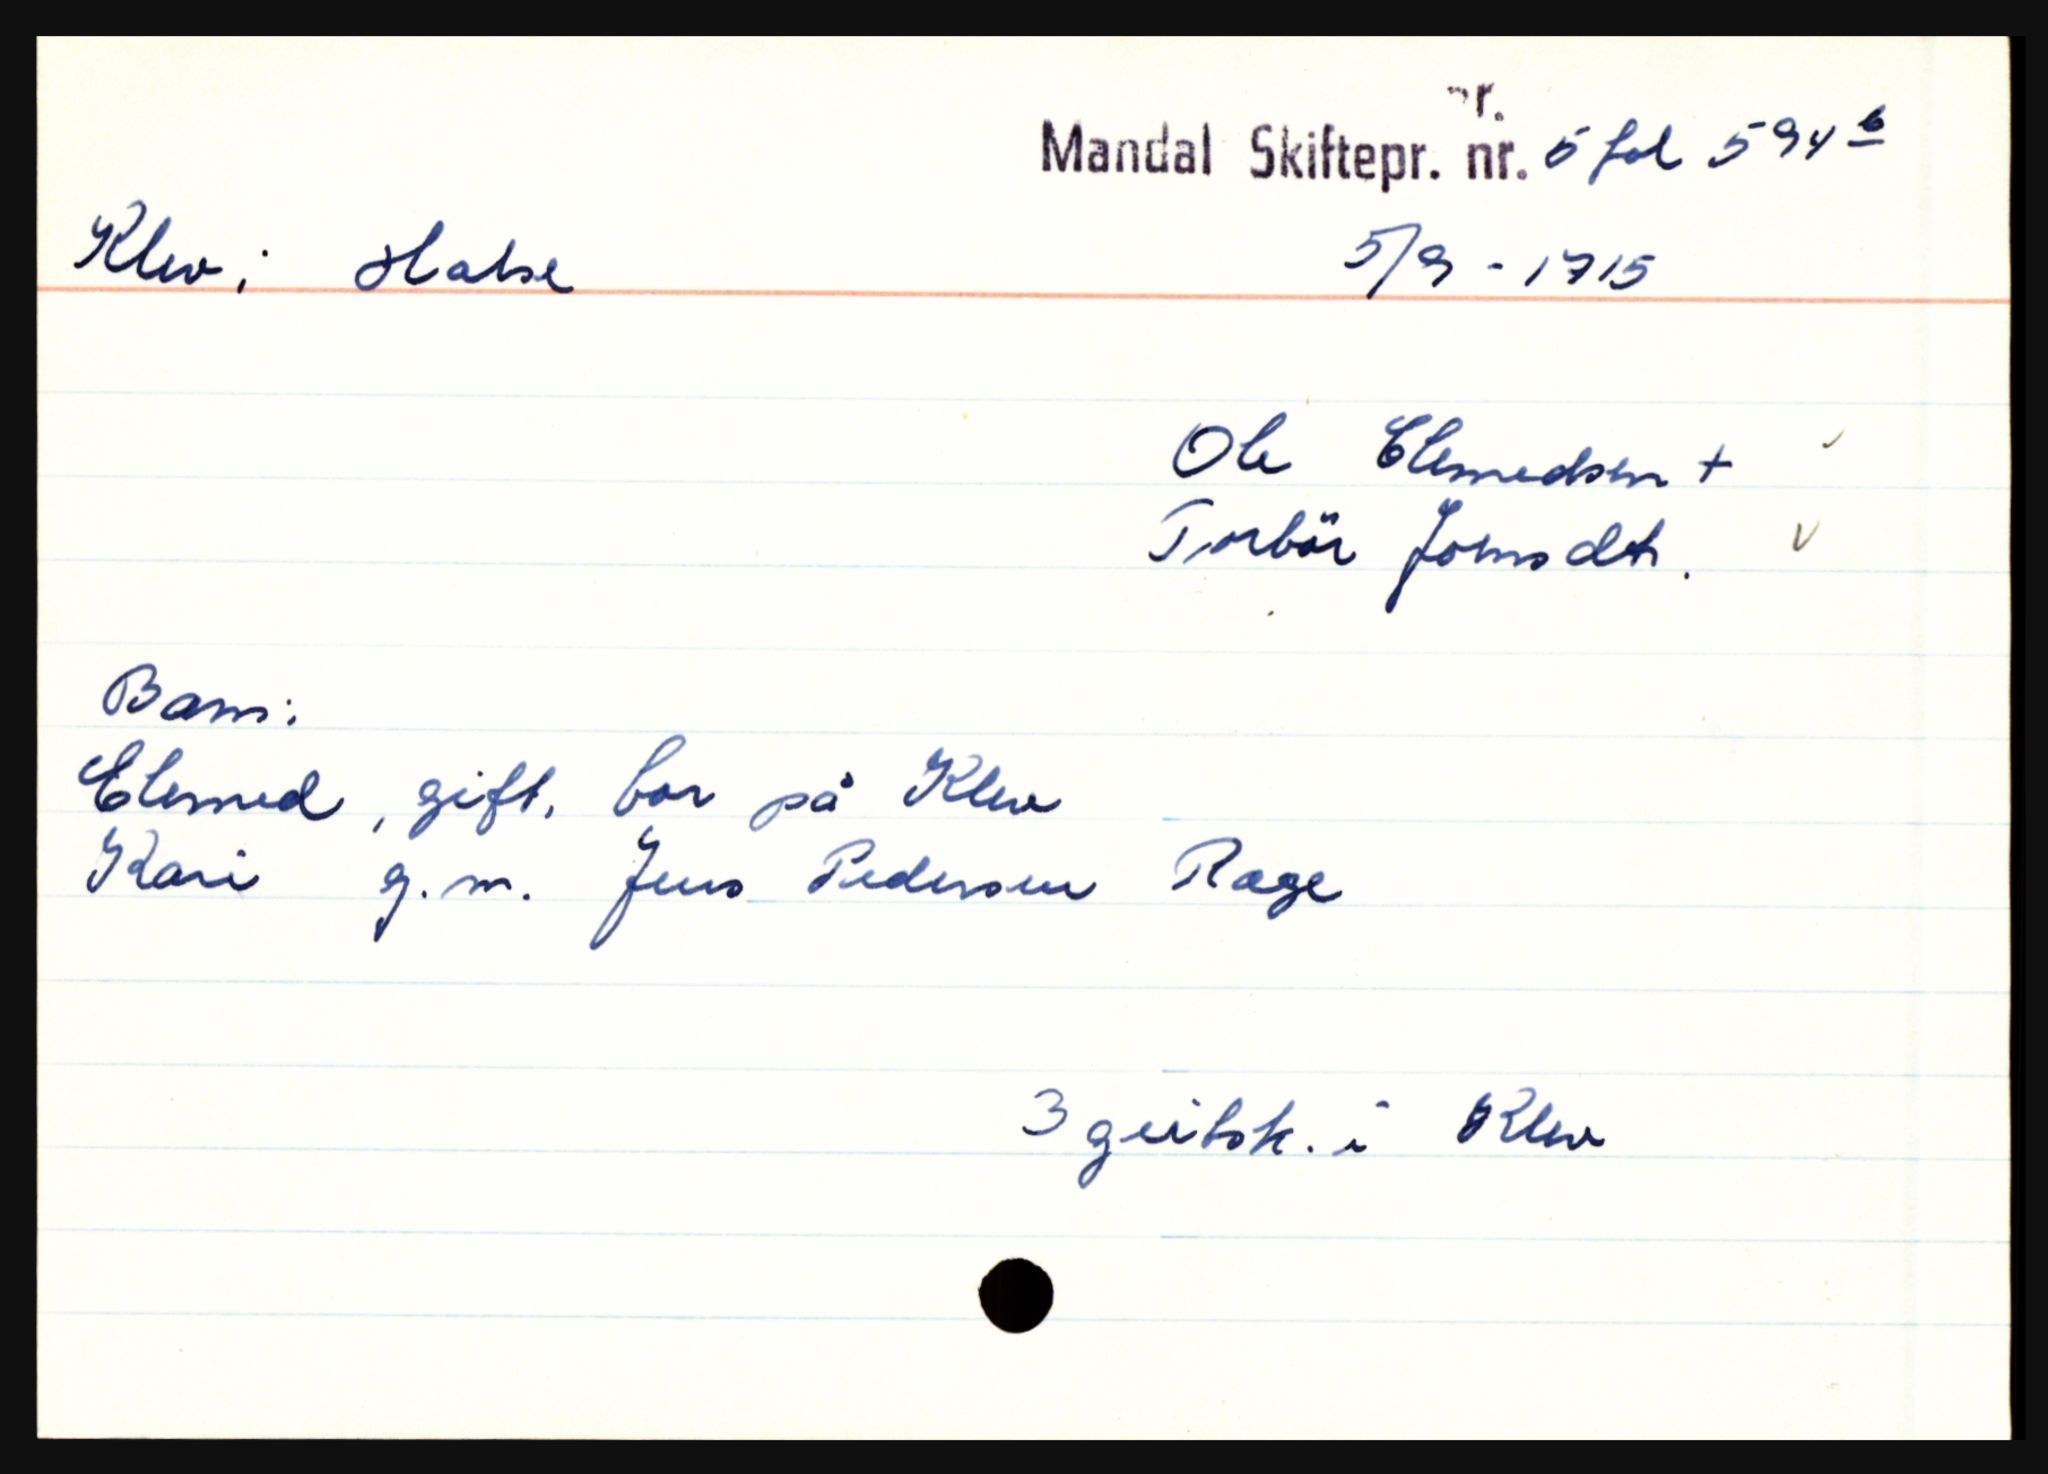 nr.
Mandal Skiftepr. nr. 5 fol 594 b
Klev i Halse 5/9 - 1715
Ole Clemedsen +
Torbör Jonsdtr.
Barn:
Clemed, gift, bor på Klev
Kari g.m. Jens Pedersen Rage
3 geitsk. i Klev